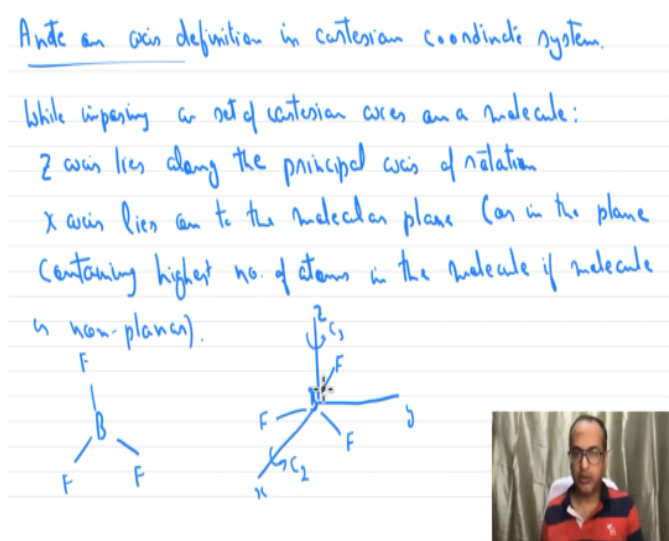 A note on axis definition in cartesian coordinate system.
While imposing a set of cartesian axes on a molecule:
Z axis lies along the principal axis of rotation
X axis lies on to the molecular plane (or in the plane
containing highest no. of atoms in the molecule if molecule
is non-planar).
Z
C3
F
F
B
B
y
F
F
F
F
C2
x